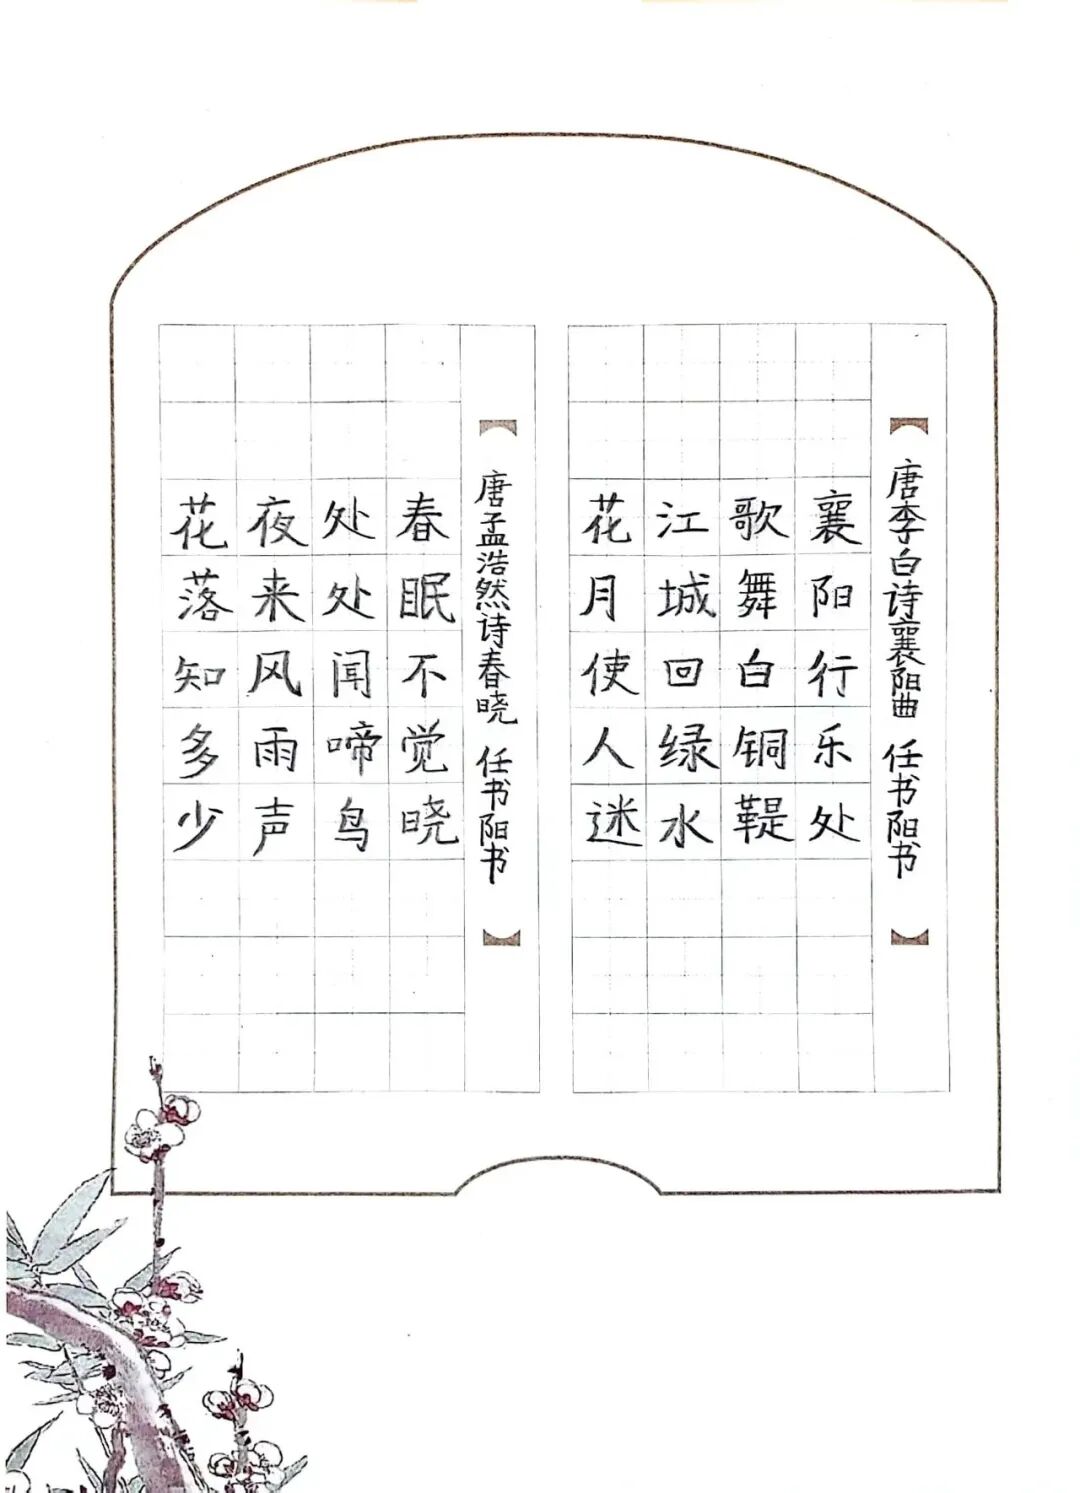 唐李白诗襄阳曲 任书阳书
襄阳行乐处
歌舞白铜鞮
江城回绿水
花月使人迷
唐孟浩然诗春晓 任书阳书
春眠不觉晓
处处闻啼鸟
夜来风雨声
花落知多少